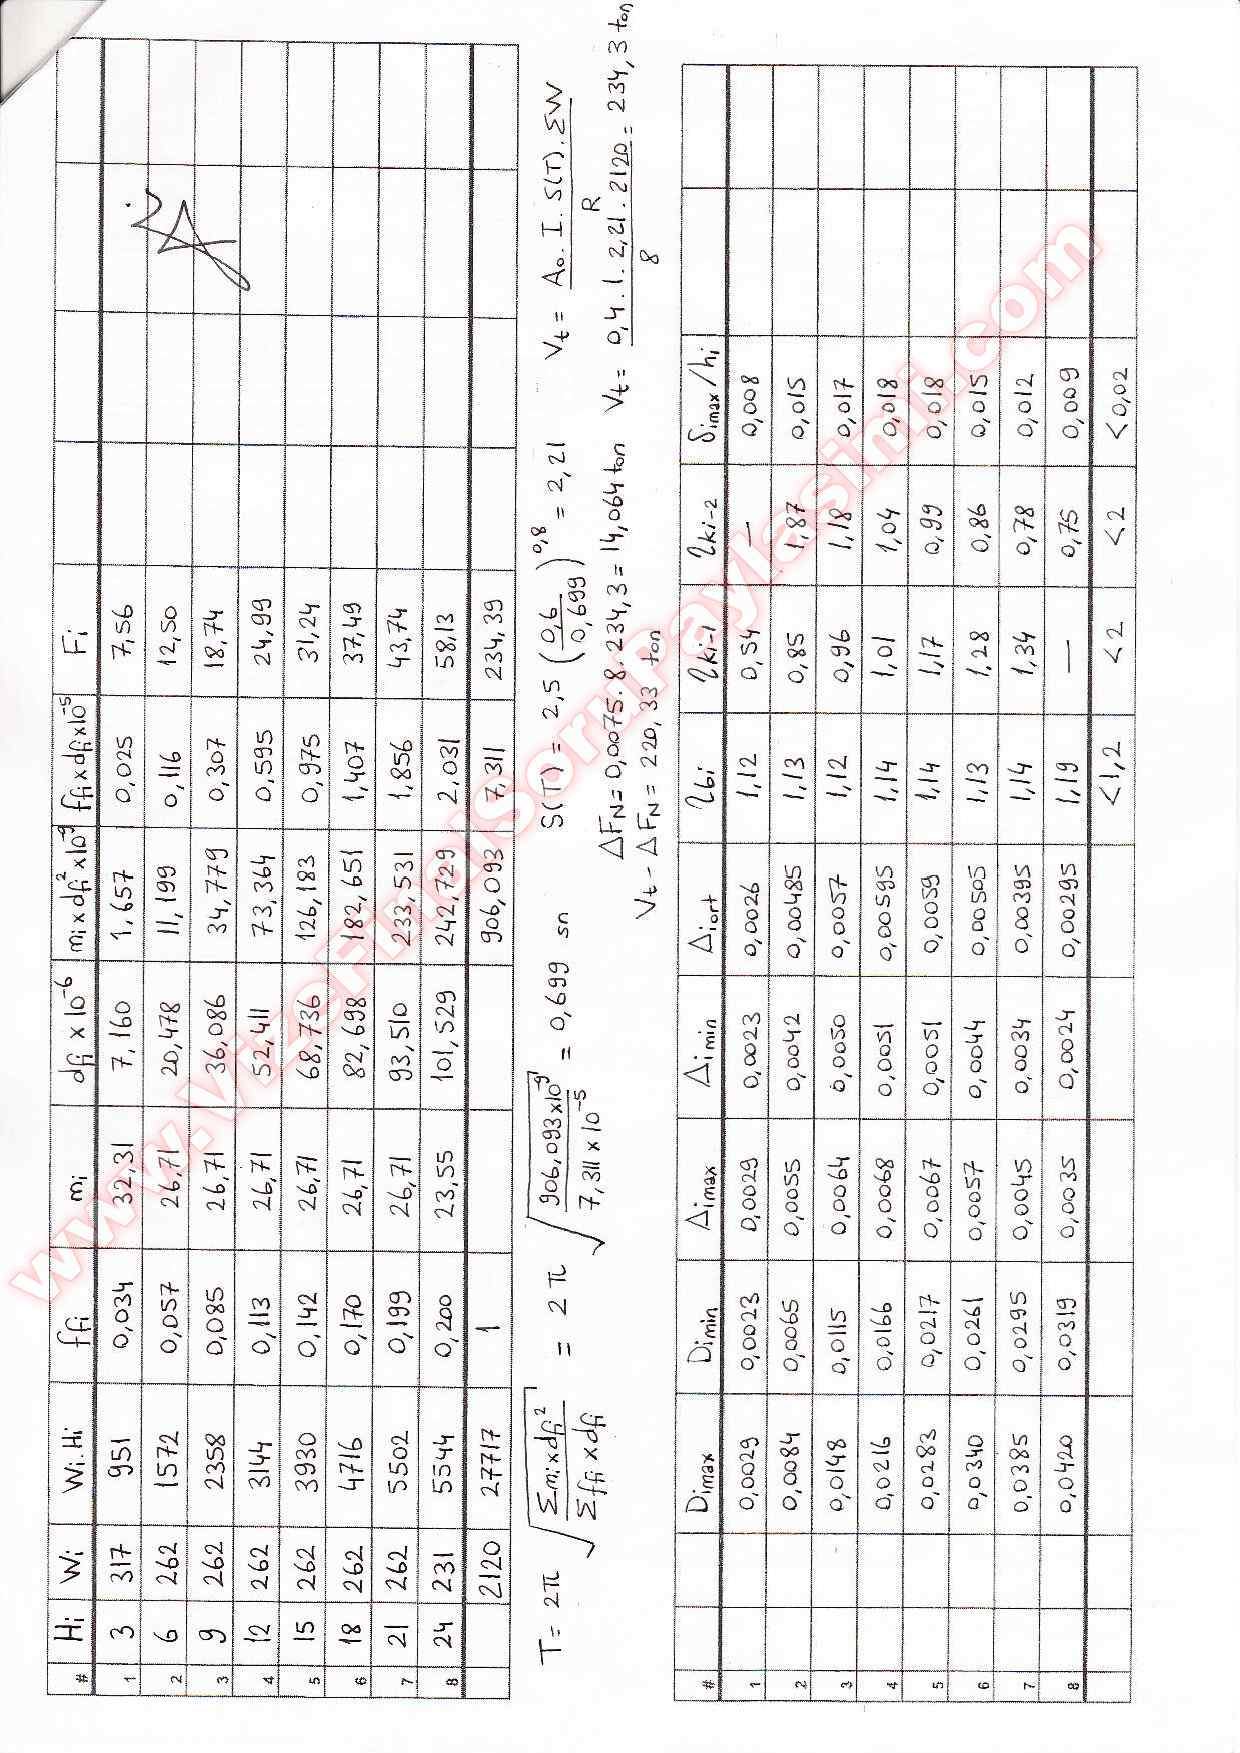 # Hi Wi Wi.Hi ffi mi dfi x 10⁻⁶ mi x dfi² x10⁻⁹ ffi x dfi x10⁻⁵ Fi
1 3 317 951 0,034 32,31 7,160 1,657 0,025 7,56
2 6 262 1572 0,057 26,71 20,478 11,199 0,116 12,50
3 9 262 2358 0,085 26,71 36,086 34,779 0,307 18,74
4 12 262 3144 0,113 26,71 52,411 73,364 0,595 24,99
5 15 262 3930 0,142 26,71 68,736 126,183 0,975 31,24
6 18 262 4716 0,170 26,71 82,698 182,651 1,407 37,49
7 21 262 5502 0,199 26,71 93,510 233,531 1,856 43,74
8 24 231 5544 0,200 23,55 101,529 242,729 2,031 58,13
2120 27717 1 906,093 7,311 234,39
T = 2π √(Σmi x dfi² / Σffi x dfi) = 2π √(906,093 x10⁻⁹ / 7,311 x 10⁻⁵) = 0,699 sn
S(T) = 2,5 (0,6 / 0,699)^0,8 = 2,21
Vt = A₀ . I . S(T) . ΣW / R
ΔFN = 0,0075.8.234,3 = 14,064 ton Vt = 0,4 . 1 . 2,21 . 2120 / 8 = 234,3 ton
Vt - ΔFN = 220,33 ton
# Dimax Dimin Δimax Δimin Δiort ηbi ηki-1 ηki-2 δimax/hi
1 0,0029 0,0023 0,0029 0,0023 0,0026 1,12 0,54 — 0,008
2 0,0084 0,0065 0,0055 0,0042 0,00485 1,13 0,85 1,87 0,015
3 0,0148 0,0115 0,0064 0,0050 0,0057 1,12 0,96 1,18 0,017
4 0,0216 0,0166 0,0068 0,0051 0,00595 1,14 1,01 1,04 0,018
5 0,0283 0,0217 0,0067 0,0051 0,0059 1,14 1,17 0,99 0,018
6 0,0340 0,0261 0,0057 0,0044 0,00505 1,13 1,28 0,86 0,015
7 0,0385 0,0295 0,0045 0,0034 0,00395 1,14 1,34 0,78 0,012
8 0,0420 0,0319 0,0035 0,0024 0,00295 1,19 — 0,75 0,009
<1,2 <2 <2 <0,02
www.VizeFinalSoruPaylasimi.com